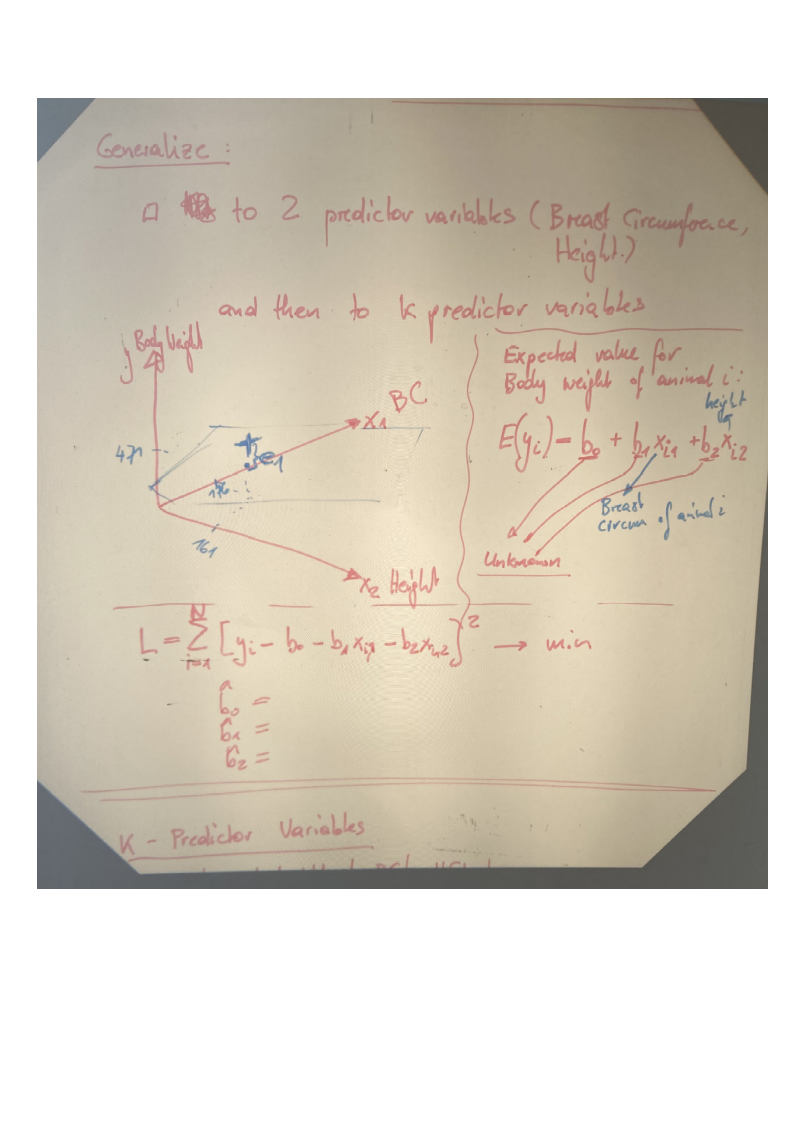 Generalize :
□ to 2 predictor variables (Breast Circumference,
Height.)
and then to K predictor variables
y Body Weight
x₁ BC
471
e₁
176
161
x₂ Height
Expected value for
Body weight of animal i :
height
E(yᵢ) = b₀ + b₁xᵢ₁ + b₂xᵢ₂
Breast
circum of animal i
Unknown
L = Σᵢ₌₁ᴺ [yᵢ - b₀ - b₁xᵢ₁ - b₂xᵢ₂]² → min
b̂₀ =
b̂₁ =
b̂₂ =
K - Predictor Variables